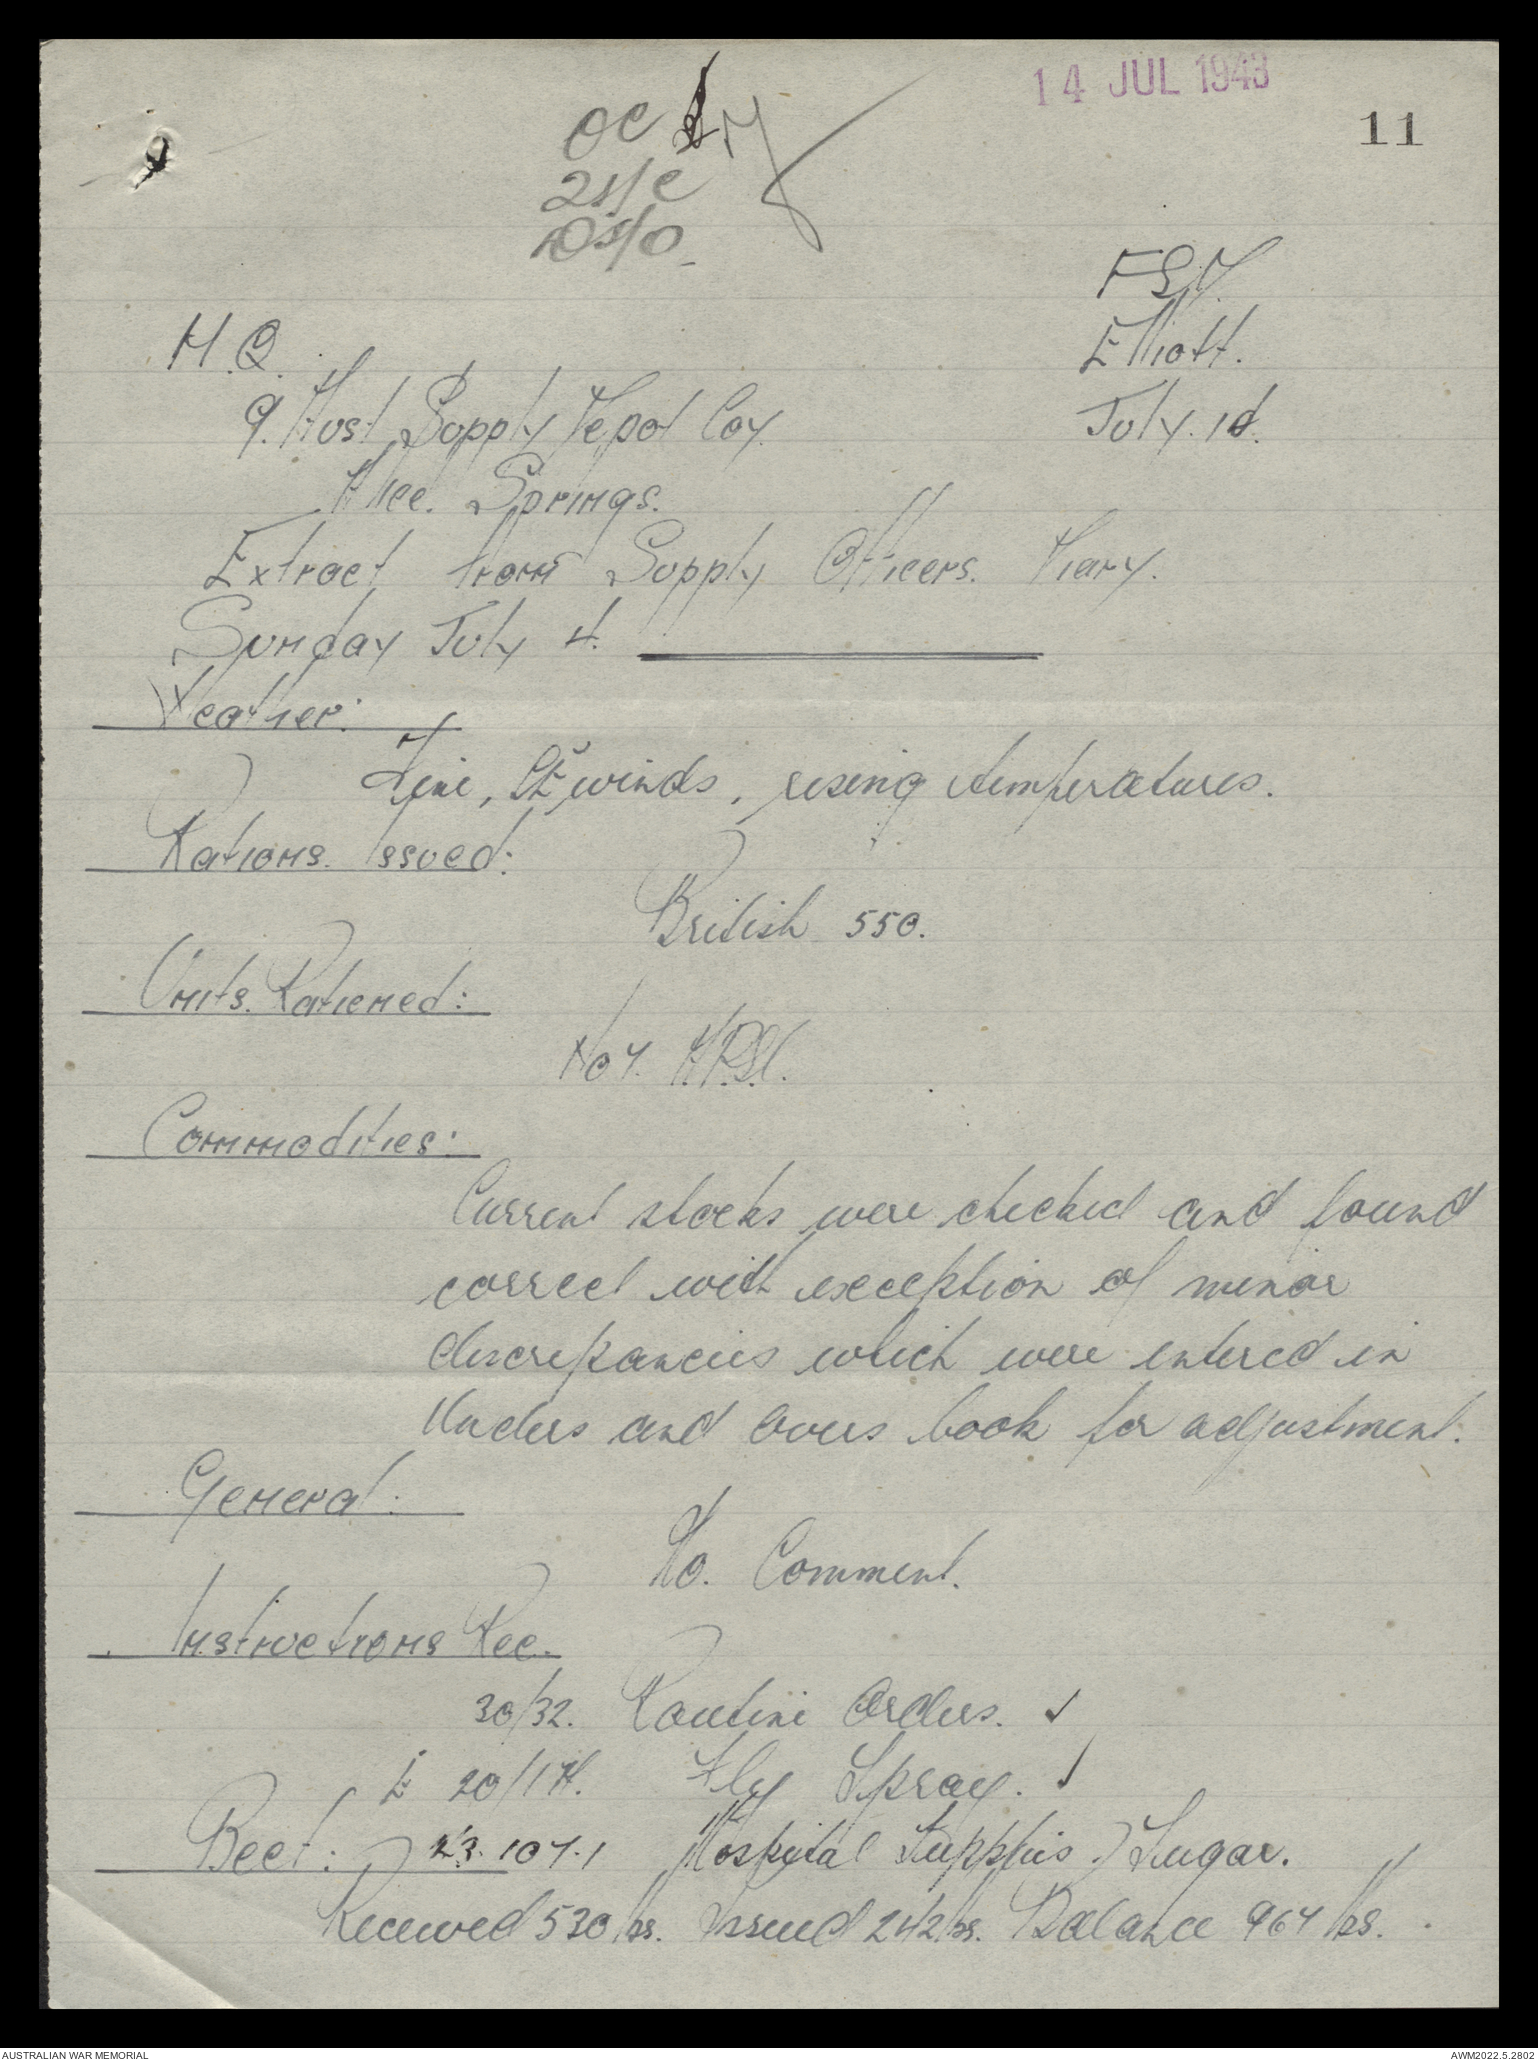 14 JUL 1943
11
OC
2I/C
F.S.D.
H.Q.
Elliott.
9. Aust Supply Depot Coy.
July. 10.
Alice. Springs.
Extract from Supply Officers. Diary.
Sunday July 4.
Weather:
Fine, SE winds, rising temperatures.
Rations. Issued:
British 550.
Units. Rationed:
No 7. A.P.S.C.
Commodities:
Current stocks were checked and found
correct with exception of minor
discrepancies which were entered in
Unders and Overs book for adjustment.
General:
No. Comment.
Instructions Rec.
30/32. Routine Orders. ✓
E 20/174. Fly Spray. ✓
Beef: 23.107.1 Hospital Supplies. Sugar.
Received 530 lbs. Issued 242 lbs. Balance 967 lbs.
AUSTRALIAN WAR MEMORIAL
AWM2022.5.2802